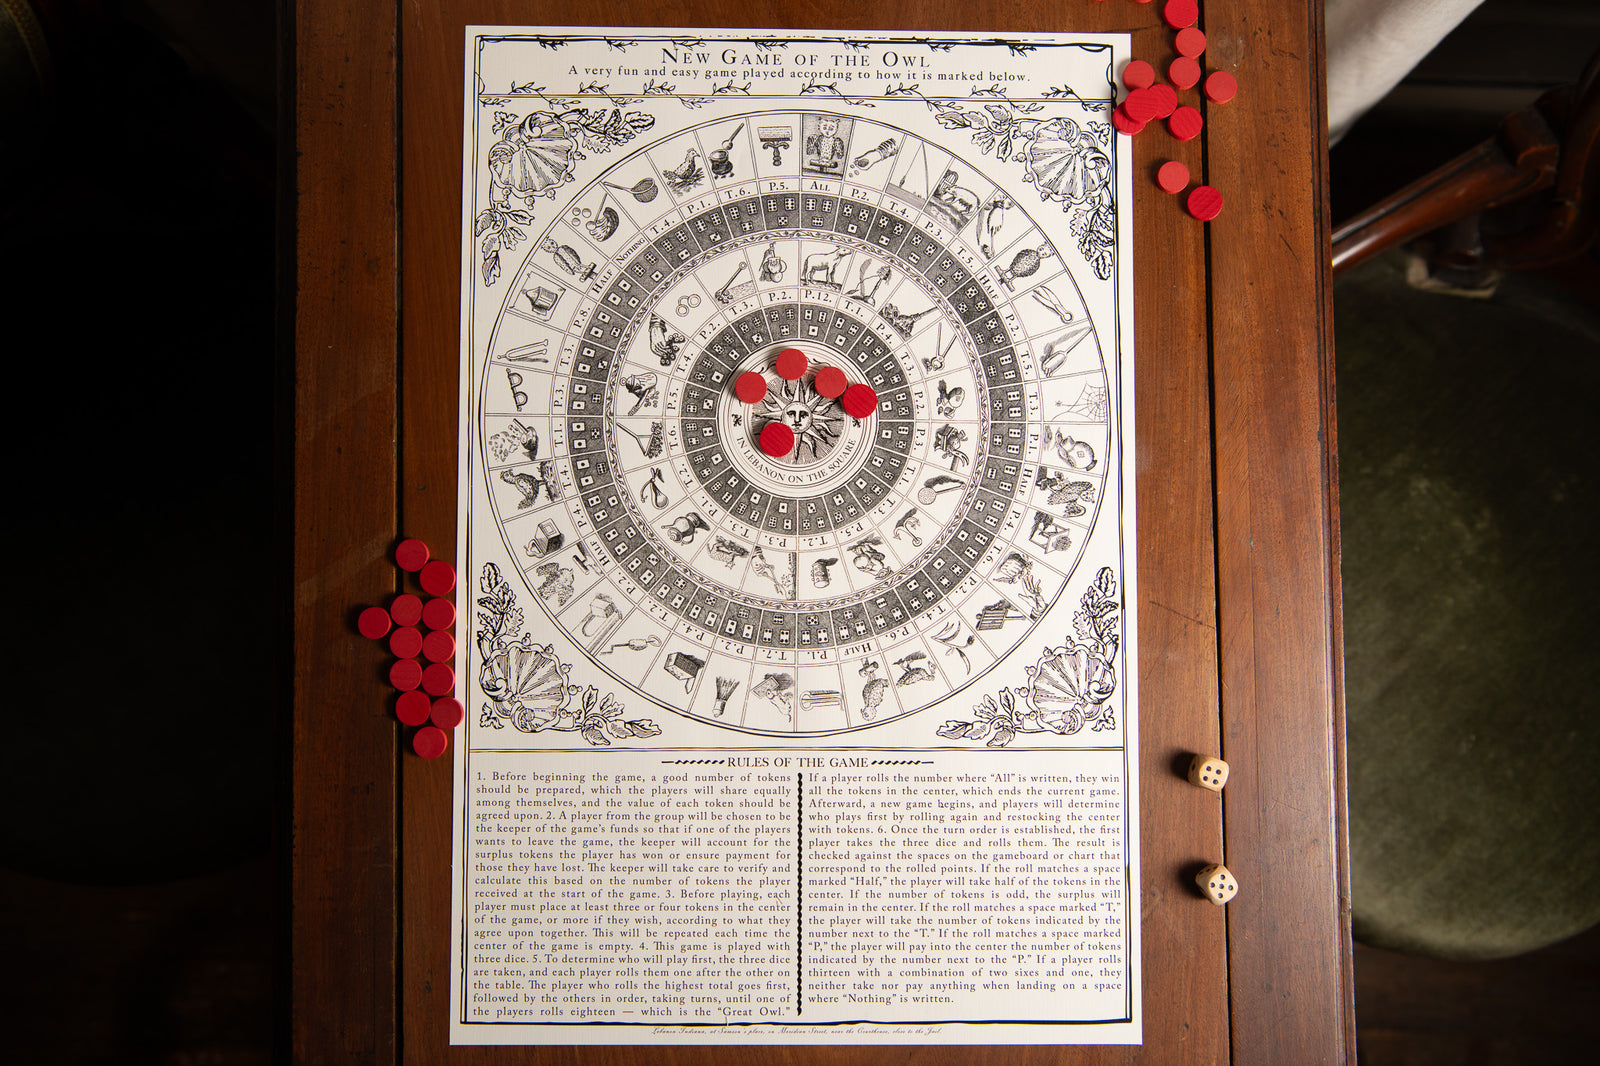 New Game of the Owl
A very fun and easy game played according to how it is marked below.
All
P.2.
T.4.
P.3.
T.5.
Half
P.2.
T.5.
T.3.
P.1.
Half
P.4.
T.6.
P.2.
T.4.
P.6.
Half
P.1.
T.7.
P.2.
P.4.
T.2.
P.2.
Half
P.4.
T.4.
T.1.
P.3.
T.3.
P.8.
Half
Nothing
T.4.
P.1.
T.6.
P.5.
P.12.
T.1.
P.4.
T.3.
P.2.
P.3.
T.1.
T.3.
P.5.
T.2.
P.3.
T.3.
P.1.
T.2.
T.6.
P.5.
T.4.
P.2.
T.3.
P.2.
IN LEBANON ON THE SQUARE
RULES OF THE GAME
1. Before beginning the game, a good number of tokens
should be prepared, which the players will share equally
among themselves, and the value of each token should be
agreed upon. 2. A player from the group will be chosen to be
the keeper of the game's funds so that if one of the players
wants to leave the game, the keeper will account for the
surplus tokens the player has won or ensure payment for
those they have lost. The keeper will take care to verify and
calculate this based on the number of tokens the player
received at the start of the game. 3. Before playing, each
player must place at least three or four tokens in the center
of the game, or more if they wish, according to what they
agree upon together. This will be repeated each time the
center of the game is empty. 4. This game is played with
three dice. 5. To determine who will play first, the three dice
are taken, and each player rolls them one after the other on
the table. The player who rolls the highest total goes first,
followed by the others in order, taking turns, until one of
the players rolls eighteen — which is the "Great Owl."
If a player rolls the number where "All" is written, they win
all the tokens in the center, which ends the current game.
Afterward, a new game begins, and players will determine
who plays first by rolling again and restocking the center
with tokens. 6. Once the turn order is established, the first
player takes the three dice and rolls them. The result is
checked against the spaces on the gameboard or chart that
correspond to the rolled points. If the roll matches a space
marked "Half," the player will take half of the tokens in the
center. If the number of tokens is odd, the surplus will
remain in the center. If the roll matches a space marked "T,"
the player will take the number of tokens indicated by the
number next to the "T." If the roll matches a space marked
"P," the player will pay into the center the number of tokens
indicated by the number next to the "P." If a player rolls
thirteen with a combination of two sixes and one, they
neither take nor pay anything when landing on a space
where "Nothing" is written.
Lebanon Indiana, at Samson's place, on Meridian Street, near the Courthouse, close to the Jail.